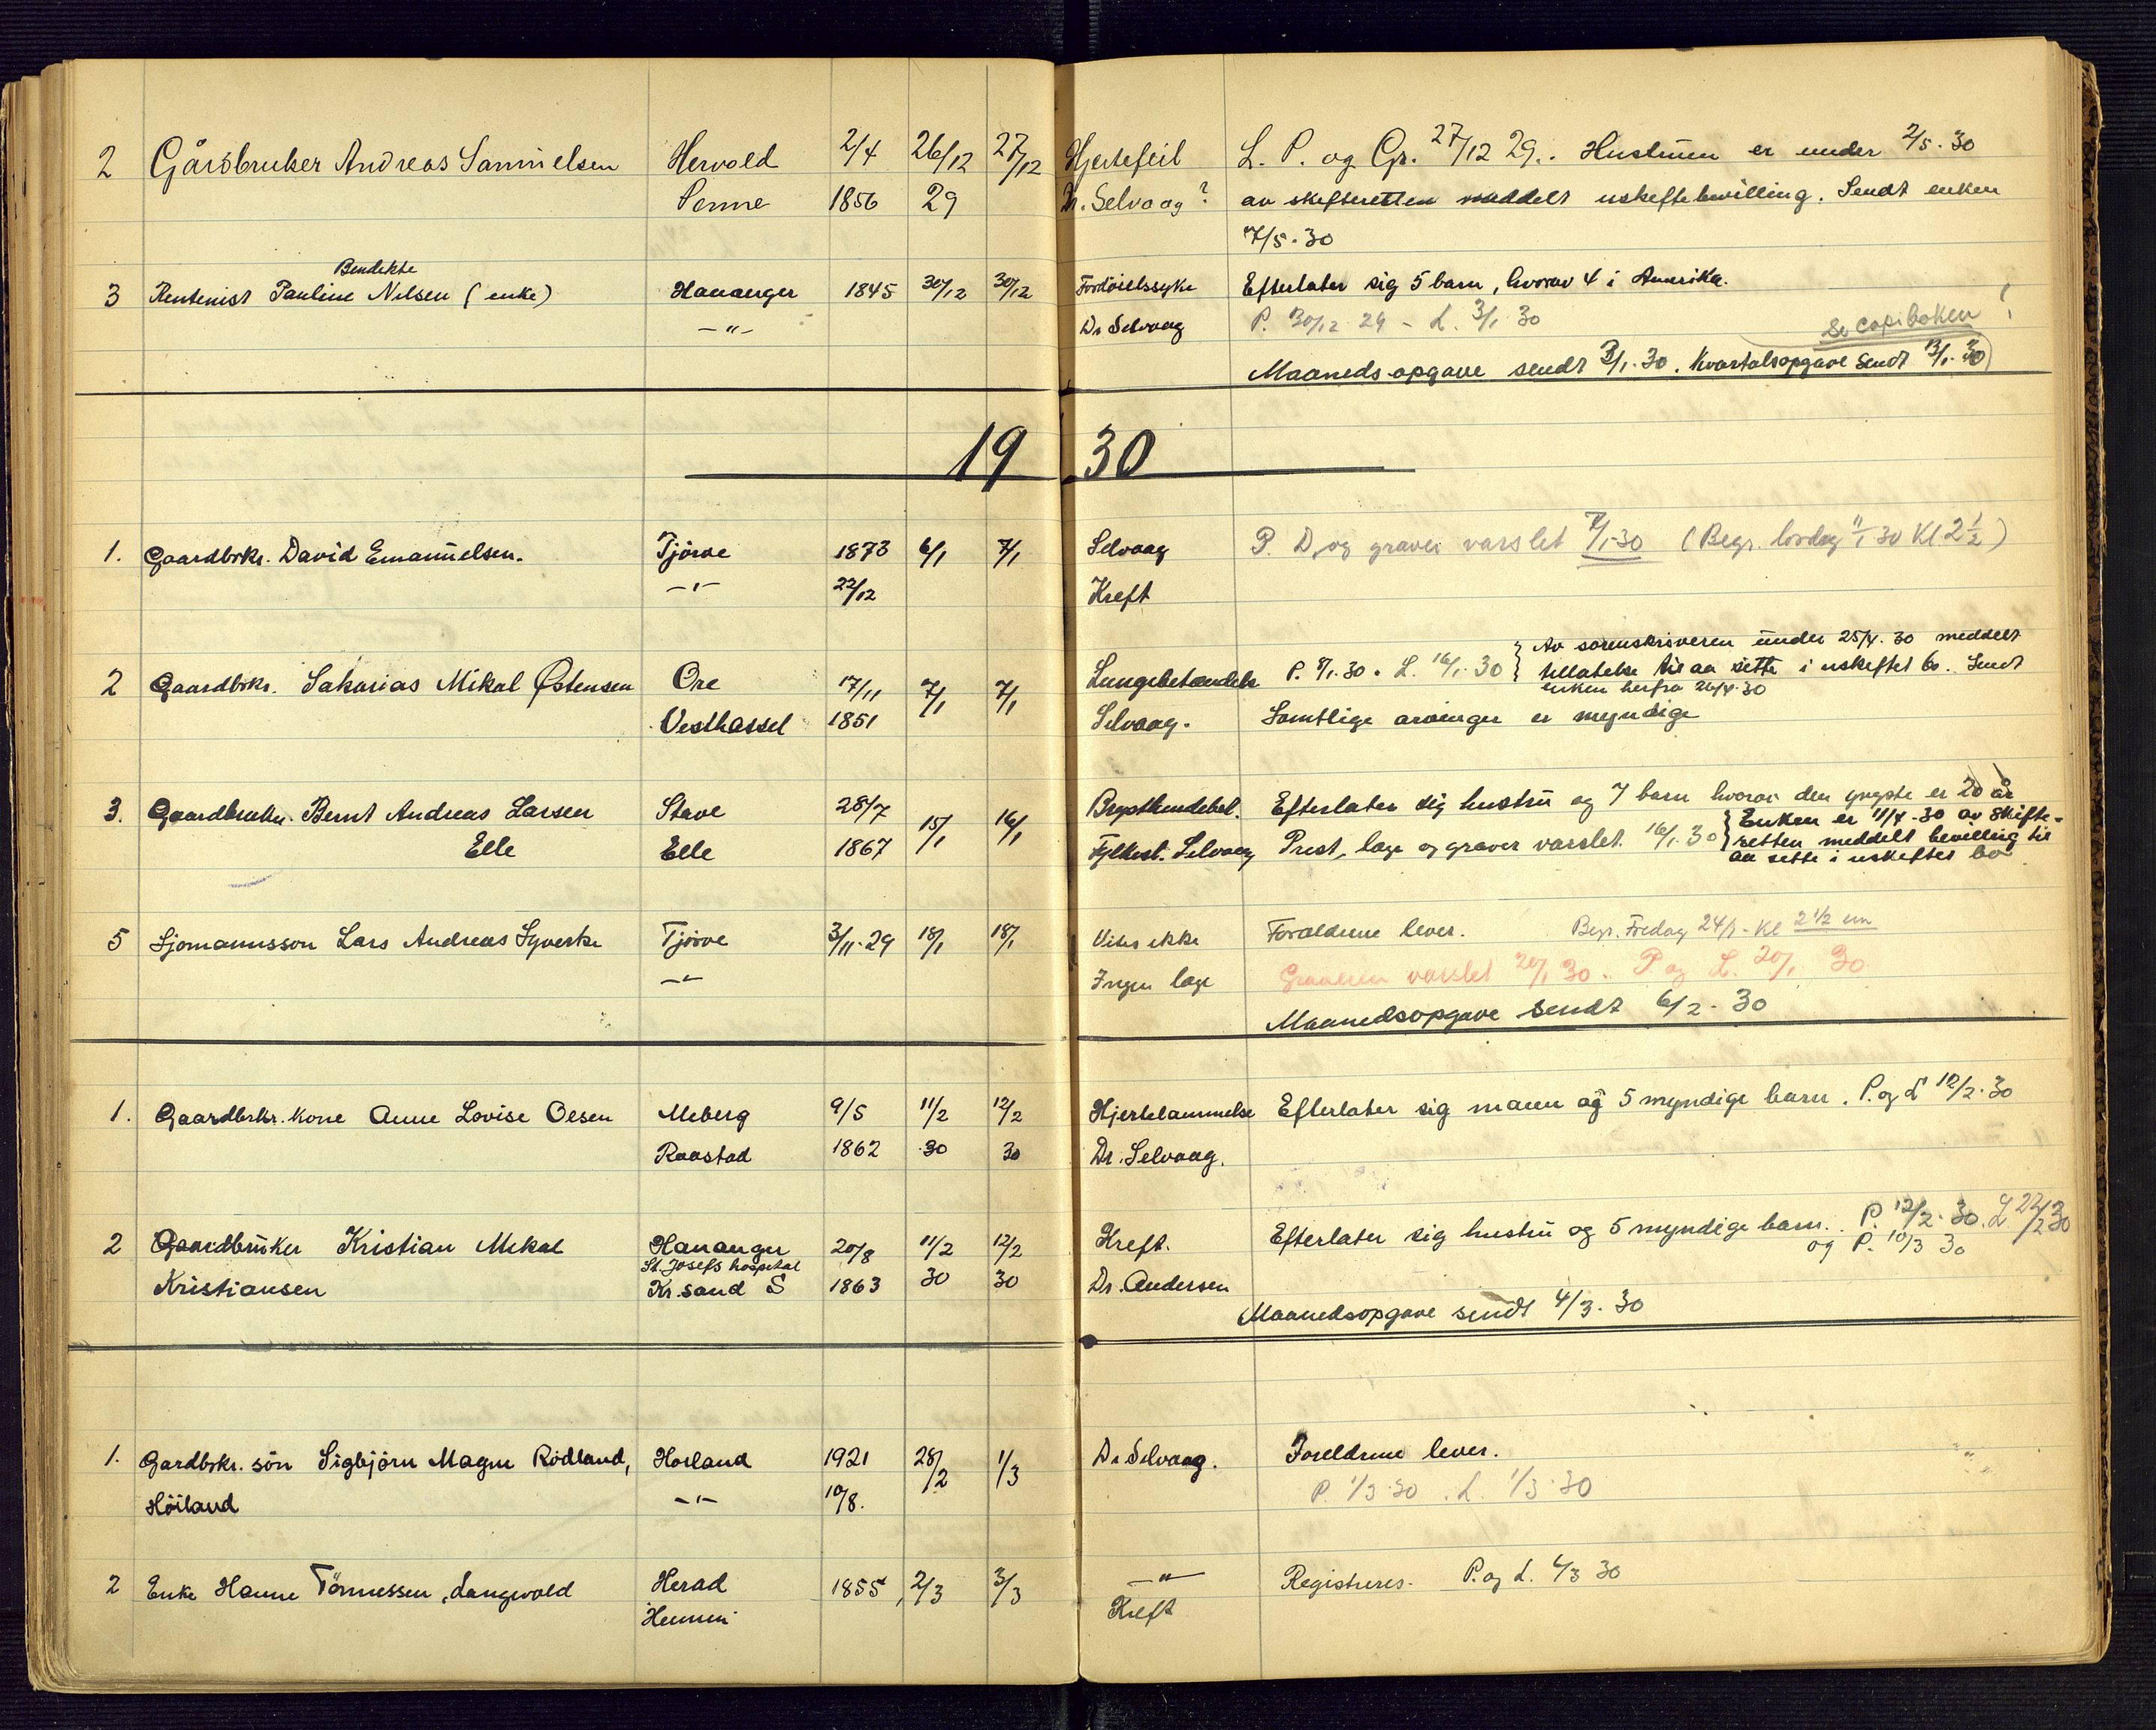 2 Gårdbruker Andreas Samuelsen Hervold 2/4 26/12 27/12 Hjertefeil L. P. og Gr. 27/12 29.. Hustruen er under 2/5.30
Penne 1856 29 Dr. Selvaag ? av skifteretten meddelt uskiftebevilling. Sendt enken
7/5.30
Bendikte
3 Rentenist Pauline Nilsen (enke) Hananger 1845 30/12 30/12 Fordöielssyke Efterlater sig 5 barn, hvorav 4 i Amerika.
-"- Dr Selvaag P. 30/12 29 - L. 3/1 30 Se copiboken !
Maaneds opgave sendt 3/1.30. Kvartalsopgave sendt 13/1.30
19 30
1. Gaardbrkr. David Emanuelsen. Tjörve 1873 6/1 7/1 Selvaag P. D, og graver varslet 7/1-30 (Begr. lördag 11/1 30 Kl 2 1/2)
-"- 22/12 Kreft
Av sorenskriveren under 25/4.30 meddelt
2 Gaardbrkr. Sakarias Mikal Østensen Ore 17/11 7/1 7/1 Lungebetændelse P. 8/1.30. L. 16/1.30 tillatelse til aa sitte i uskiftet bo. Sendt
enken herfra 26/4.30
Vesthassel 1851 Selvaag. Samtlige arvinger er myndige
3. Gaardbruker Bernt Andreas Larsen Stave 28/7 15/1 16/1 Brysthindebet. Efterlater sig hustru og 7 barn hvorav den yngste er 20 år
Elle Elle 1867 Fylkesl. Selvaag Prest, læge og graver varslet 16/1.30 Enken er 11/4.30 av skifte-
retten meddelt bevilling til
aa sitte i uskiftet bo
5 Sjömannssön Lars Andreas Syvertsen Tjörve 3/11-29 18/1 18/1 Vites ikke Foraldrene lever. Begr. Fredag 24/1 - Kl 2 1/2 em
-"- Ingen læge Graveren varslet 20/1 30.. P og L. 20/1 30
Maanedsopgave sendt 6/2-30
1. Gaardbrkr. kone Anne Lovise Olsen Meberg 9/5 11/2 12/2 Hjertelammelse Efterlater sig mann og 5 myndige barn. P. og L 12/2.30
Raastad 1862 30 30 Dr. Selvaag.
2 Gaardbruker Kristian Mikal Hananger 20/8 11/2 12/2 Kreft. Efterlater sig hustru og 5 myndige barn. P. 12/2.30. L 22/2 30
St. Josefs hospital og P. 10/3 30
Kristiansen Kr.sand S 1863 30 30 Dr. Andersen
Maanedsopgave sendt 4/3.30
1. Gardbrkr. sön Sigbjörn Magne Rödland, Horland 1921 28/2 1/3 Dr Selvaag. Foreldrene lever.
Höiland -"- 10/8. P. 1/3.30. L. 1/3.30
2 Enke Hanne Tönnessen, Langvold Herad 1855, 2/3 3/3 -"- Registreres. P. og L. 4/3 30
Hummi Kreft